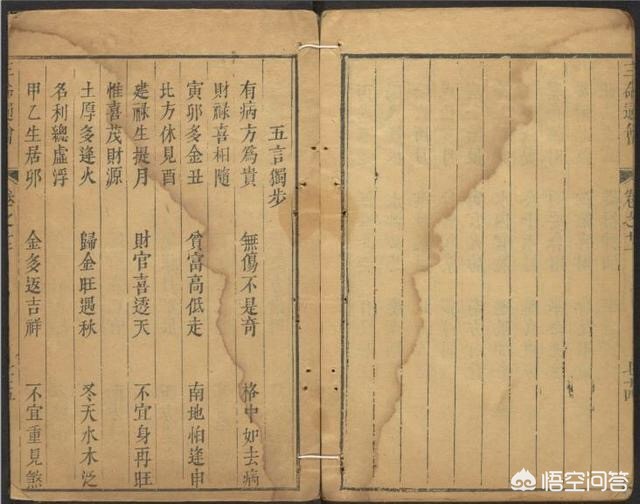 三命通會
五言獨步
有病方爲貴 無傷不是奇 格中如去病
財祿喜相隨
寅卯多金丑 貧富高低走 南地怕逢申
北方休見酉
建祿生提月 財官喜透天 不宜身再旺
惟喜茂財源
土厚多逢火 歸金旺遇秋 冬天水木泛
名利總虛浮
甲乙生居卯 金多返吉祥 不宜重見煞
三命通會
悟空问答